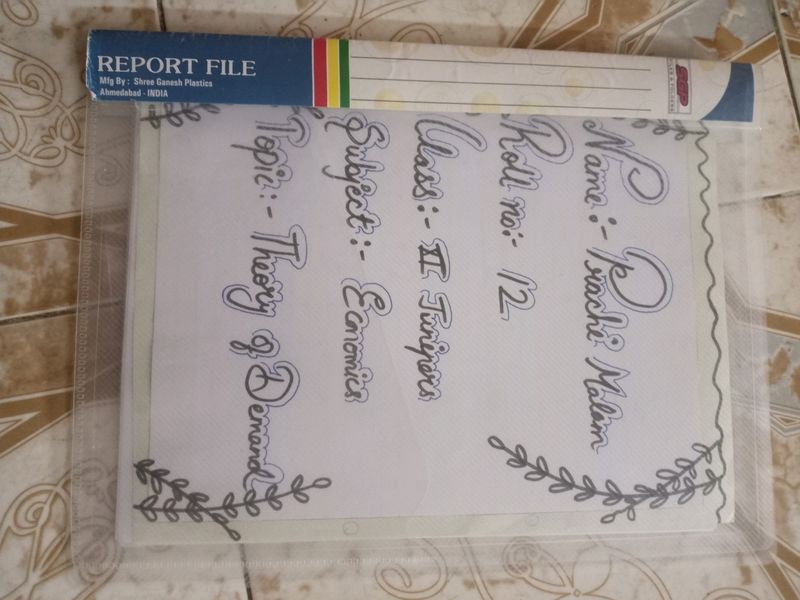 REPORT FILE
Mfg By : Shree Ganesh Plastics
Ahmedabad - INDIA
SGP
Name:- Prachi Malam
Roll no:- 12
Class:- XI Junipers
Subject:- Economics
Topic:- Theory of Demand